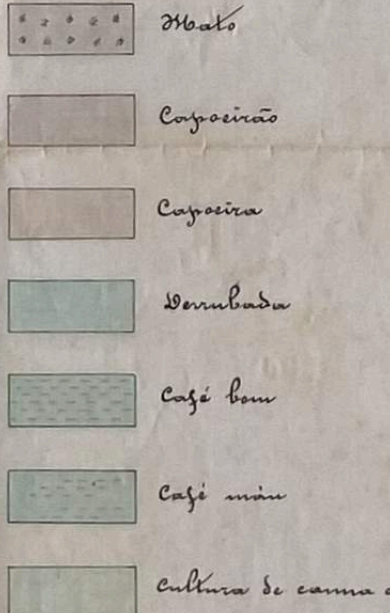 Mato
Capoeirão
Capoeira
Derrubada
Café bom
Café máu
Cultura de canna